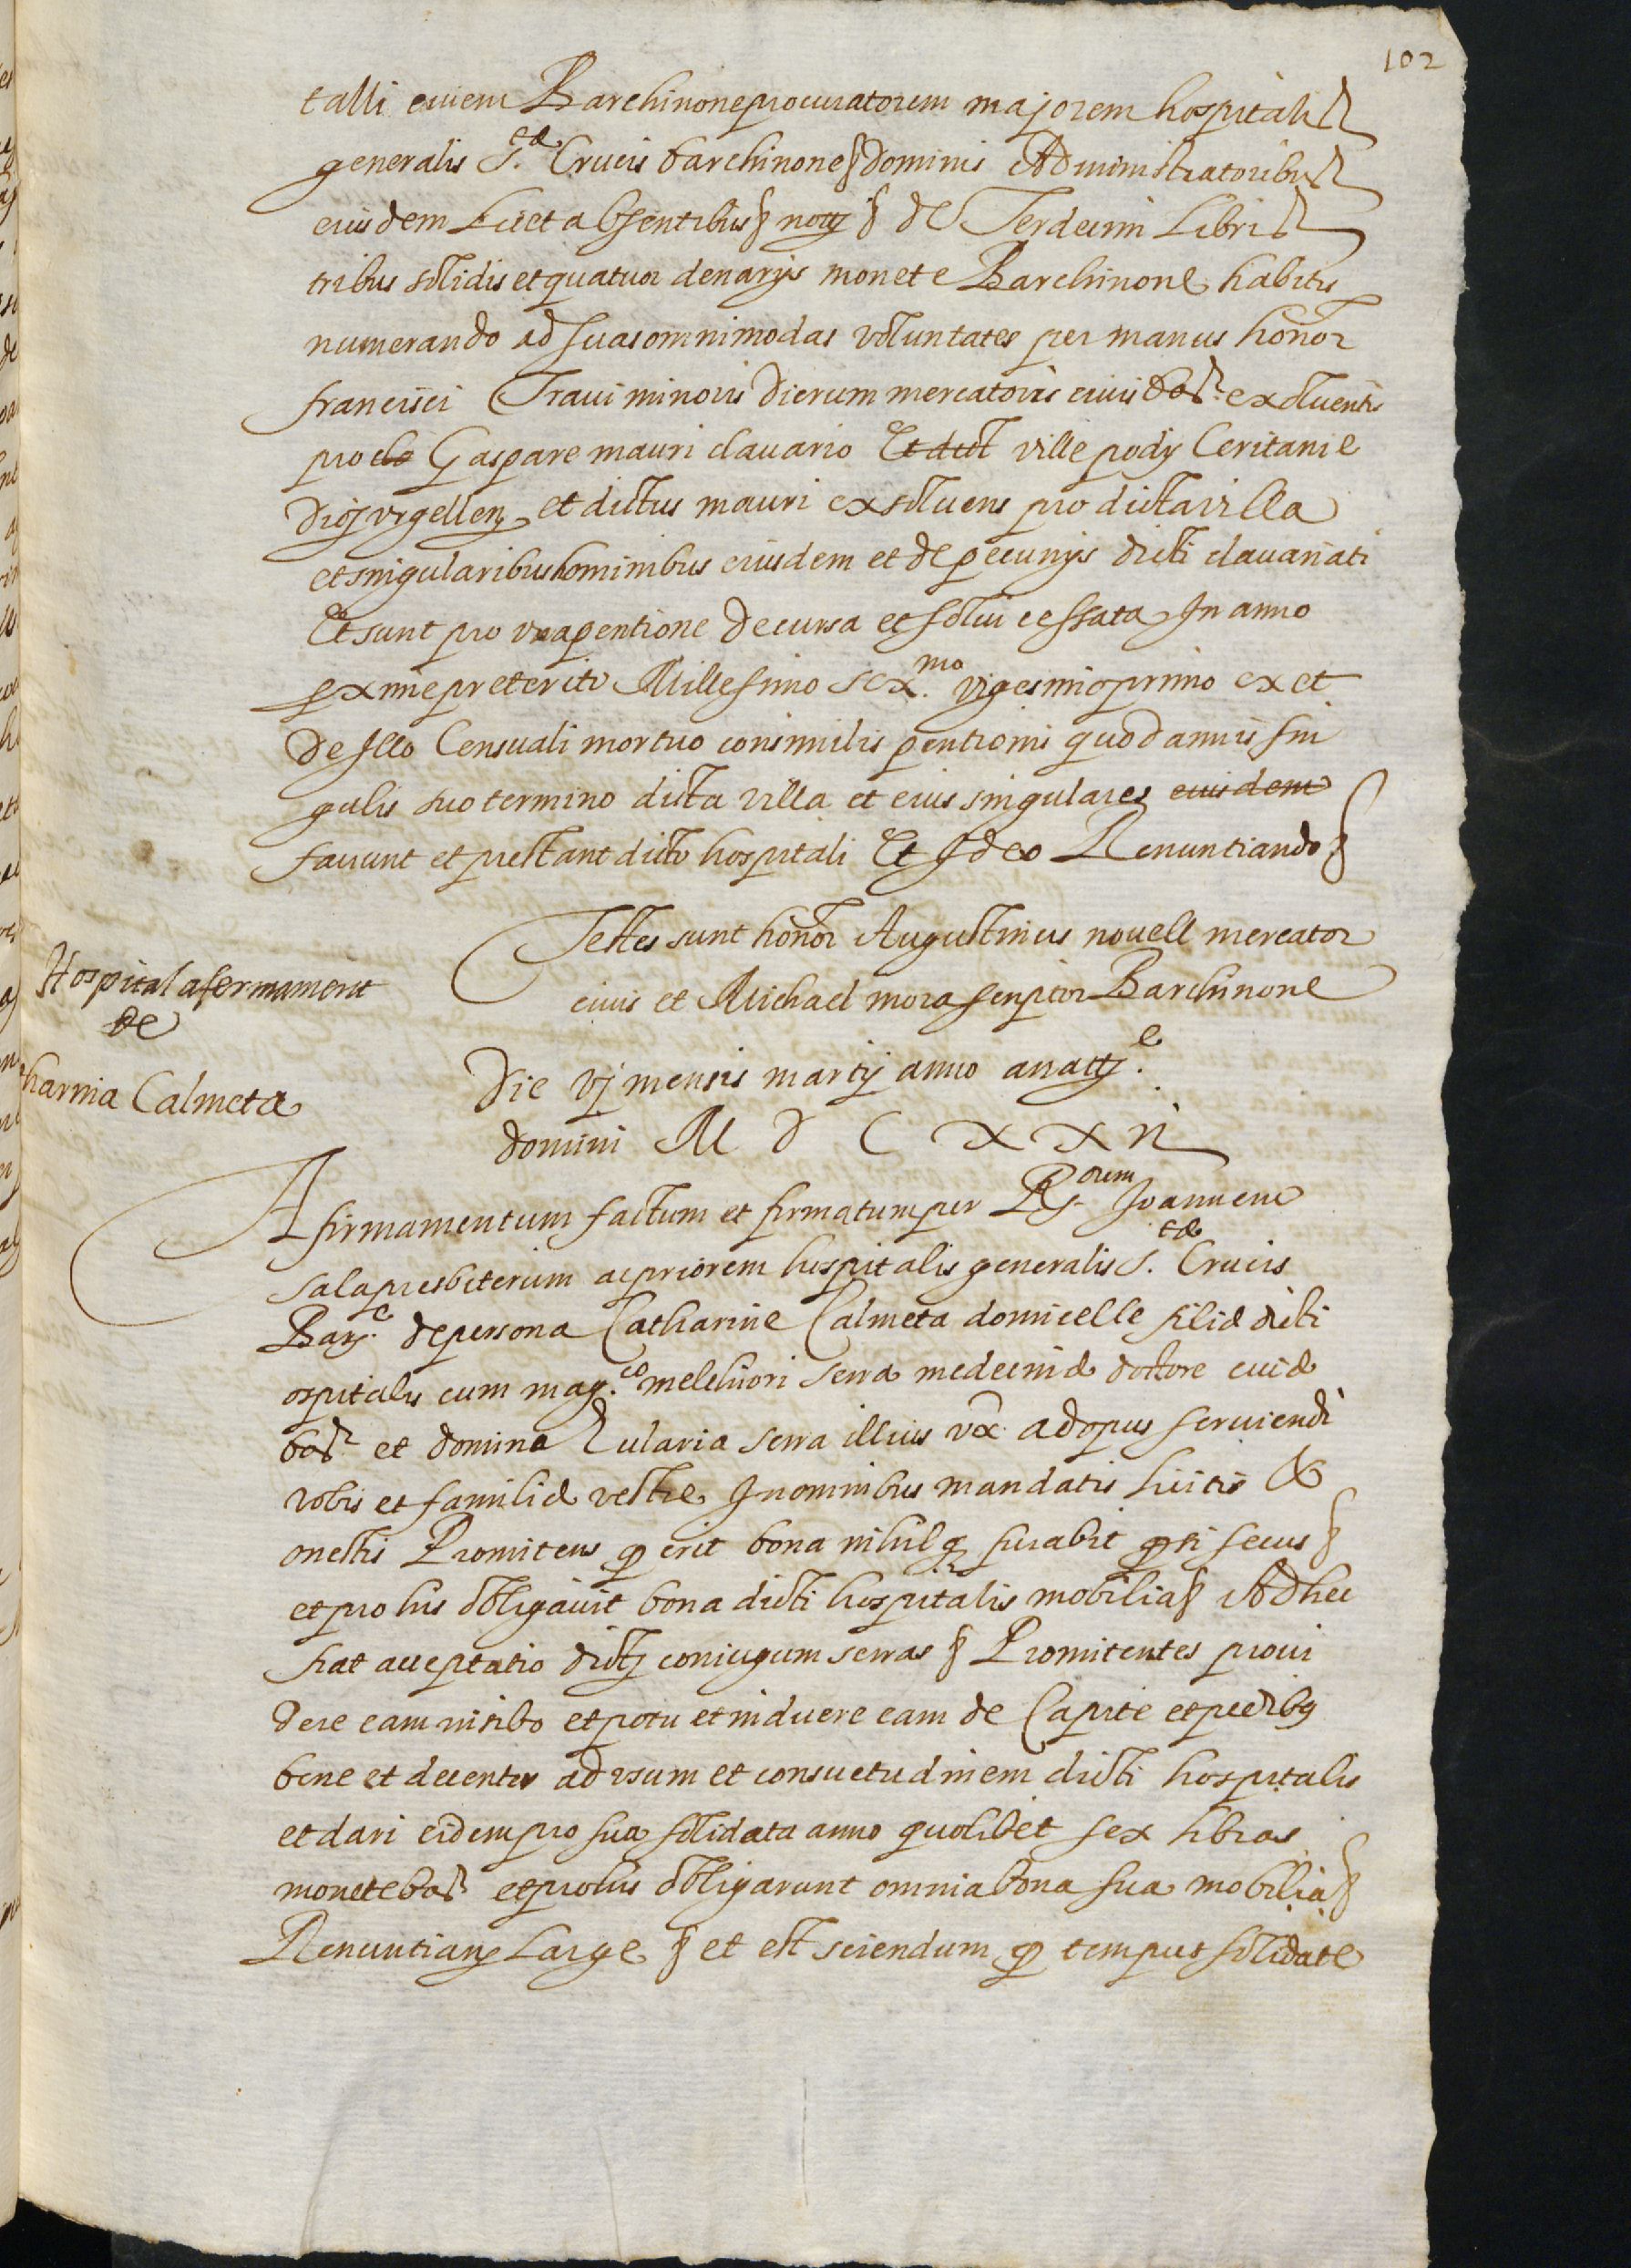 102
talli civem Barchinone procuratorem majorem hospitalis
generalis S.te Crucis barchinone § dominis Administratoribus
eiusdem Licet absentibus § noty § de Terdecim Libris
tribus solidis et quatuor denarys monete Barchinone habitis
numerando ad suas omnimodas voluntates per manus honor
francisci Travi minoris dierum mercatoris civis bar. exoluentis
pro Gaspare mauri clauario Et dict ville pody Ceritanie
dioj vrgellen et dictus mauri exsoluens pro dicta villa
et singularibus hominibus eiusdem et de pecunys dicti clauariati
Et sunt pro vna pentione decursa et solui cessata In anno
proxime preterito Millesimo sex.mo vigesimo primo ex et
de Illo Censuali mortuo consimilis pentionis quod annis sin
gulis suo termino dicta villa et eius singulares eiusdem
faciunt et prestant dicto hospitali Et Ideo Renuntiando §
Testes sunt honor Augustinus nouell mercator
civis et Michael mora scriptor Barchinone
Hospital afermament
de
tharina Calmeta
Die vj mensis martij anno a natty.e
domini M D C X X ii
Afirmamentum factum et firmatum per R.orum Joannem
sala presbiterum ac priorem hospitalis generalis S.te Crucis
Barj.e de persona Catharine Calmeta domicelle filie dicti
ospitalis cum mag.co melchiori serra medecine doctore cive
bar et domina Eularia serra illius vx. ad opus seruiendi
vobis et familie vestre In omnibus mandatis licitis &
onestis Promitens q erit bona nihilq furabit q si secus §
et pro his obligavit bona dicti hospitalis mobilia § Ad hec
fiat acceptatio dictj coniugum serras § Promitentes provi
dere eam in sibo et potu et induere eam de Capite et pedibus
bene et decenter ad vsum et consuetudinem dicti hospitalis
et dari eidem pro sua solidata anno quolibet sex libras
monete bar et pro his obligarunt omnia bona sua mobilia §
Renuntians Large § et est sciendum q tempus solidate